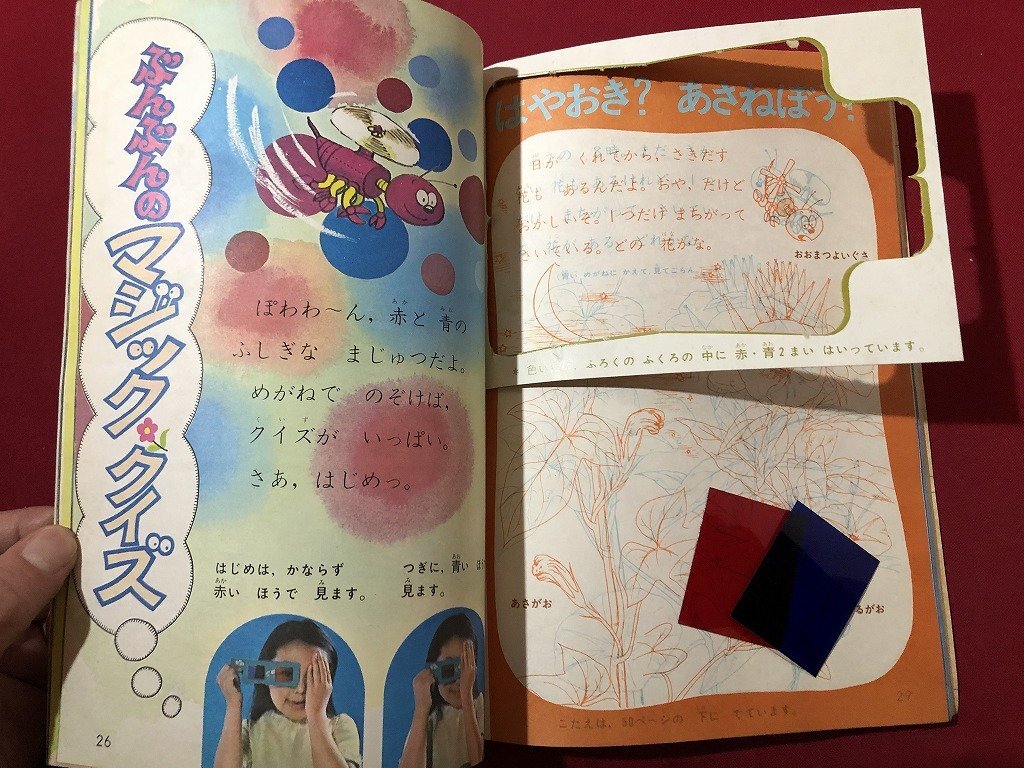 ぶんぶんの
マジック・クイズ
ぽわわ〜ん，赤と 青の
ふしぎな まじゅつだよ。
めがねで のぞけば，
クイズが いっぱい。
さあ，はじめっ。
はじめは，かならず
赤い ほうで 見ます。
つぎに，青い ほう
見ます。
26
はやおき？ あさねぼう？
日が くれてから，さきだす
花も あるんだよ。おや，だけど
おかしいぞ。1つだけ まちがって
さいている。どの 花かな。
おおまつよいぐさ
青い めがねに かえて，見てごらん。
ふろくの ふくろの 中に 赤・青2まい はいっています。
あさがお
るがお
こたえは，50ページの 下に でています。
27